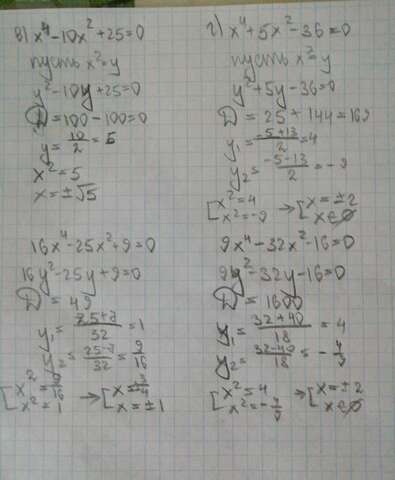 в) x⁴-10x²+25=0
пусть x²=y
y²-10y+25=0
D=100-100=0
y=10/2=5
x²=5
x=±√5
г) x⁴+5x²-36=0
пусть x²=y
y²+5y-36=0
D=25+144=169
y₁=(-5+13)/2=4
y₂=(-5-13)/2=-9
[x²=4 x²=-9 → [x=±2 x∈∅
16x⁴-25x²+9=0
16y²-25y+9=0
D=49
y₁=(25+7)/32=1
y₂=(25-7)/32=9/16
[x²=9/16 x²=1 → [x=±3/4 x=±1
9x⁴-32x²-16=0
9y²-32y-16=0
D=1600
y₁=(32+40)/18=4
y₂=(32-40)/18=-4/9
[x²=4 x²=-4/9 → [x=±2 x∈∅